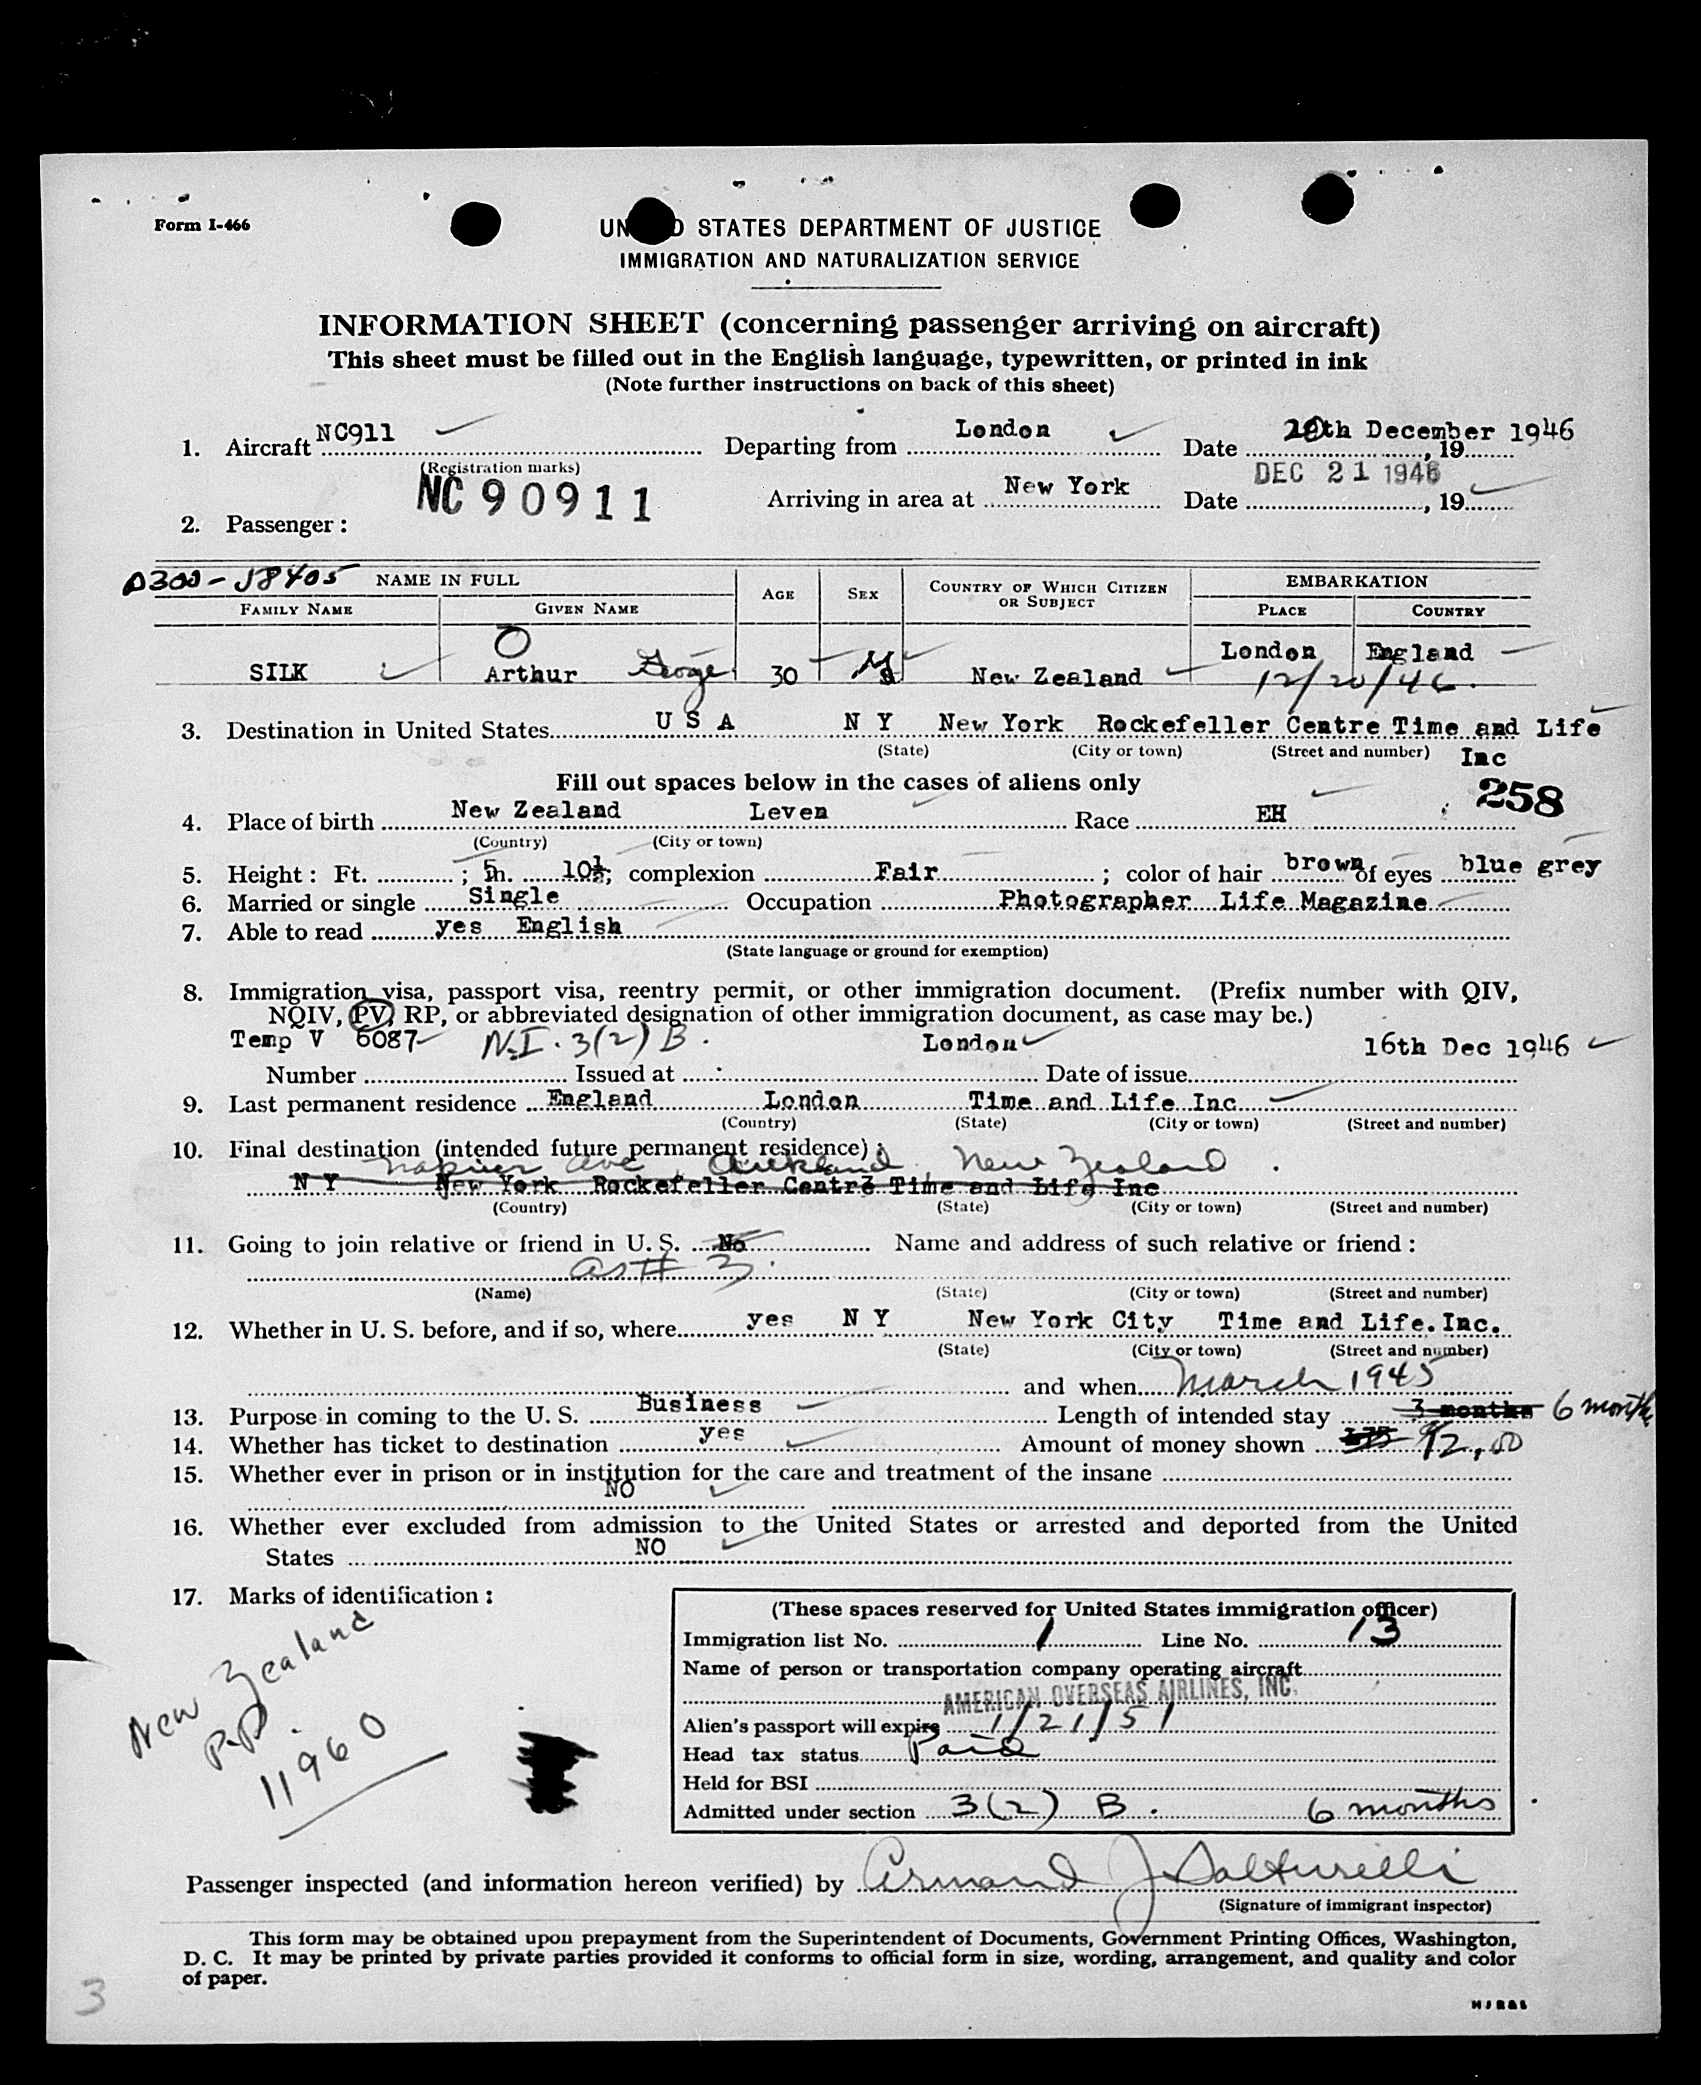 Form I-466
UNITED STATES DEPARTMENT OF JUSTICE
IMMIGRATION AND NATURALIZATION SERVICE
INFORMATION SHEET (concerning passenger arriving on aircraft)
This sheet must be filled out in the English language, typewritten, or printed in ink
(Note further instructions on back of this sheet)
1. Aircraft NC911 Departing from London Date 20th December 1946, 19
(Registration marks)
NC 90911 Arriving in area at New York Date DEC 21 1946, 19
2. Passenger:
0300-58405 NAME IN FULL AGE SEX COUNTRY OF WHICH CITIZEN OR SUBJECT EMBARKATION
FAMILY NAME GIVEN NAME PLACE COUNTRY
SILK Arthur George 30 M New Zealand London England
12/20/46.
3. Destination in United States U S A N Y New York Rockefeller Centre Time and Life
(State) (City or town) (Street and number) Inc
Fill out spaces below in the cases of aliens only
258
4. Place of birth New Zealand Leven Race EH
(Country) (City or town)
5. Height: Ft. 5; in. 10½; complexion Fair; color of hair brown of eyes blue grey
6. Married or single Single Occupation Photographer Life Magazine
7. Able to read yes English
(State language or ground for exemption)
8. Immigration visa, passport visa, reentry permit, or other immigration document. (Prefix number with QIV,
NQIV, PV, RP, or abbreviated designation of other immigration document, as case may be.)
Temp V 6087 N.I. 3(2) B. London 16th Dec 1946
Number Issued at Date of issue
9. Last permanent residence England London Time and Life Inc
(Country) (State) (City or town) (Street and number)
10. Final destination (intended future permanent residence):
Napier Ave, Auckland, New Zealand.
N Y New York Rockefeller Centre Time and Life Inc
(Country) (State) (City or town) (Street and number)
11. Going to join relative or friend in U. S. No Name and address of such relative or friend:
as # 3.
(Name) (State) (City or town) (Street and number)
12. Whether in U. S. before, and if so, where yes N Y New York City Time and Life.Inc.
(State) (City or town) (Street and number)
and when March 1945
13. Purpose in coming to the U. S. Business Length of intended stay 3 months 6 months
14. Whether has ticket to destination yes Amount of money shown 92.00
15. Whether ever in prison or in institution for the care and treatment of the insane
NO
16. Whether ever excluded from admission to the United States or arrested and deported from the United
States NO
17. Marks of identification:
New Zealand
P.P.
11960
(These spaces reserved for United States immigration officer)
Immigration list No. 1 Line No. 13
Name of person or transportation company operating aircraft
AMERICAN OVERSEAS AIRLINES, INC.
Alien's passport will expire 1/21/51
Head tax status Paid
Held for BSI
Admitted under section 3(2) B. 6 months.
Passenger inspected (and information hereon verified) by Armand J Salturelli
(Signature of immigrant inspector)
This form may be obtained upon prepayment from the Superintendent of Documents, Government Printing Offices, Washington,
D. C. It may be printed by private parties provided it conforms to official form in size, wording, arrangement, and quality and color
of paper.
3